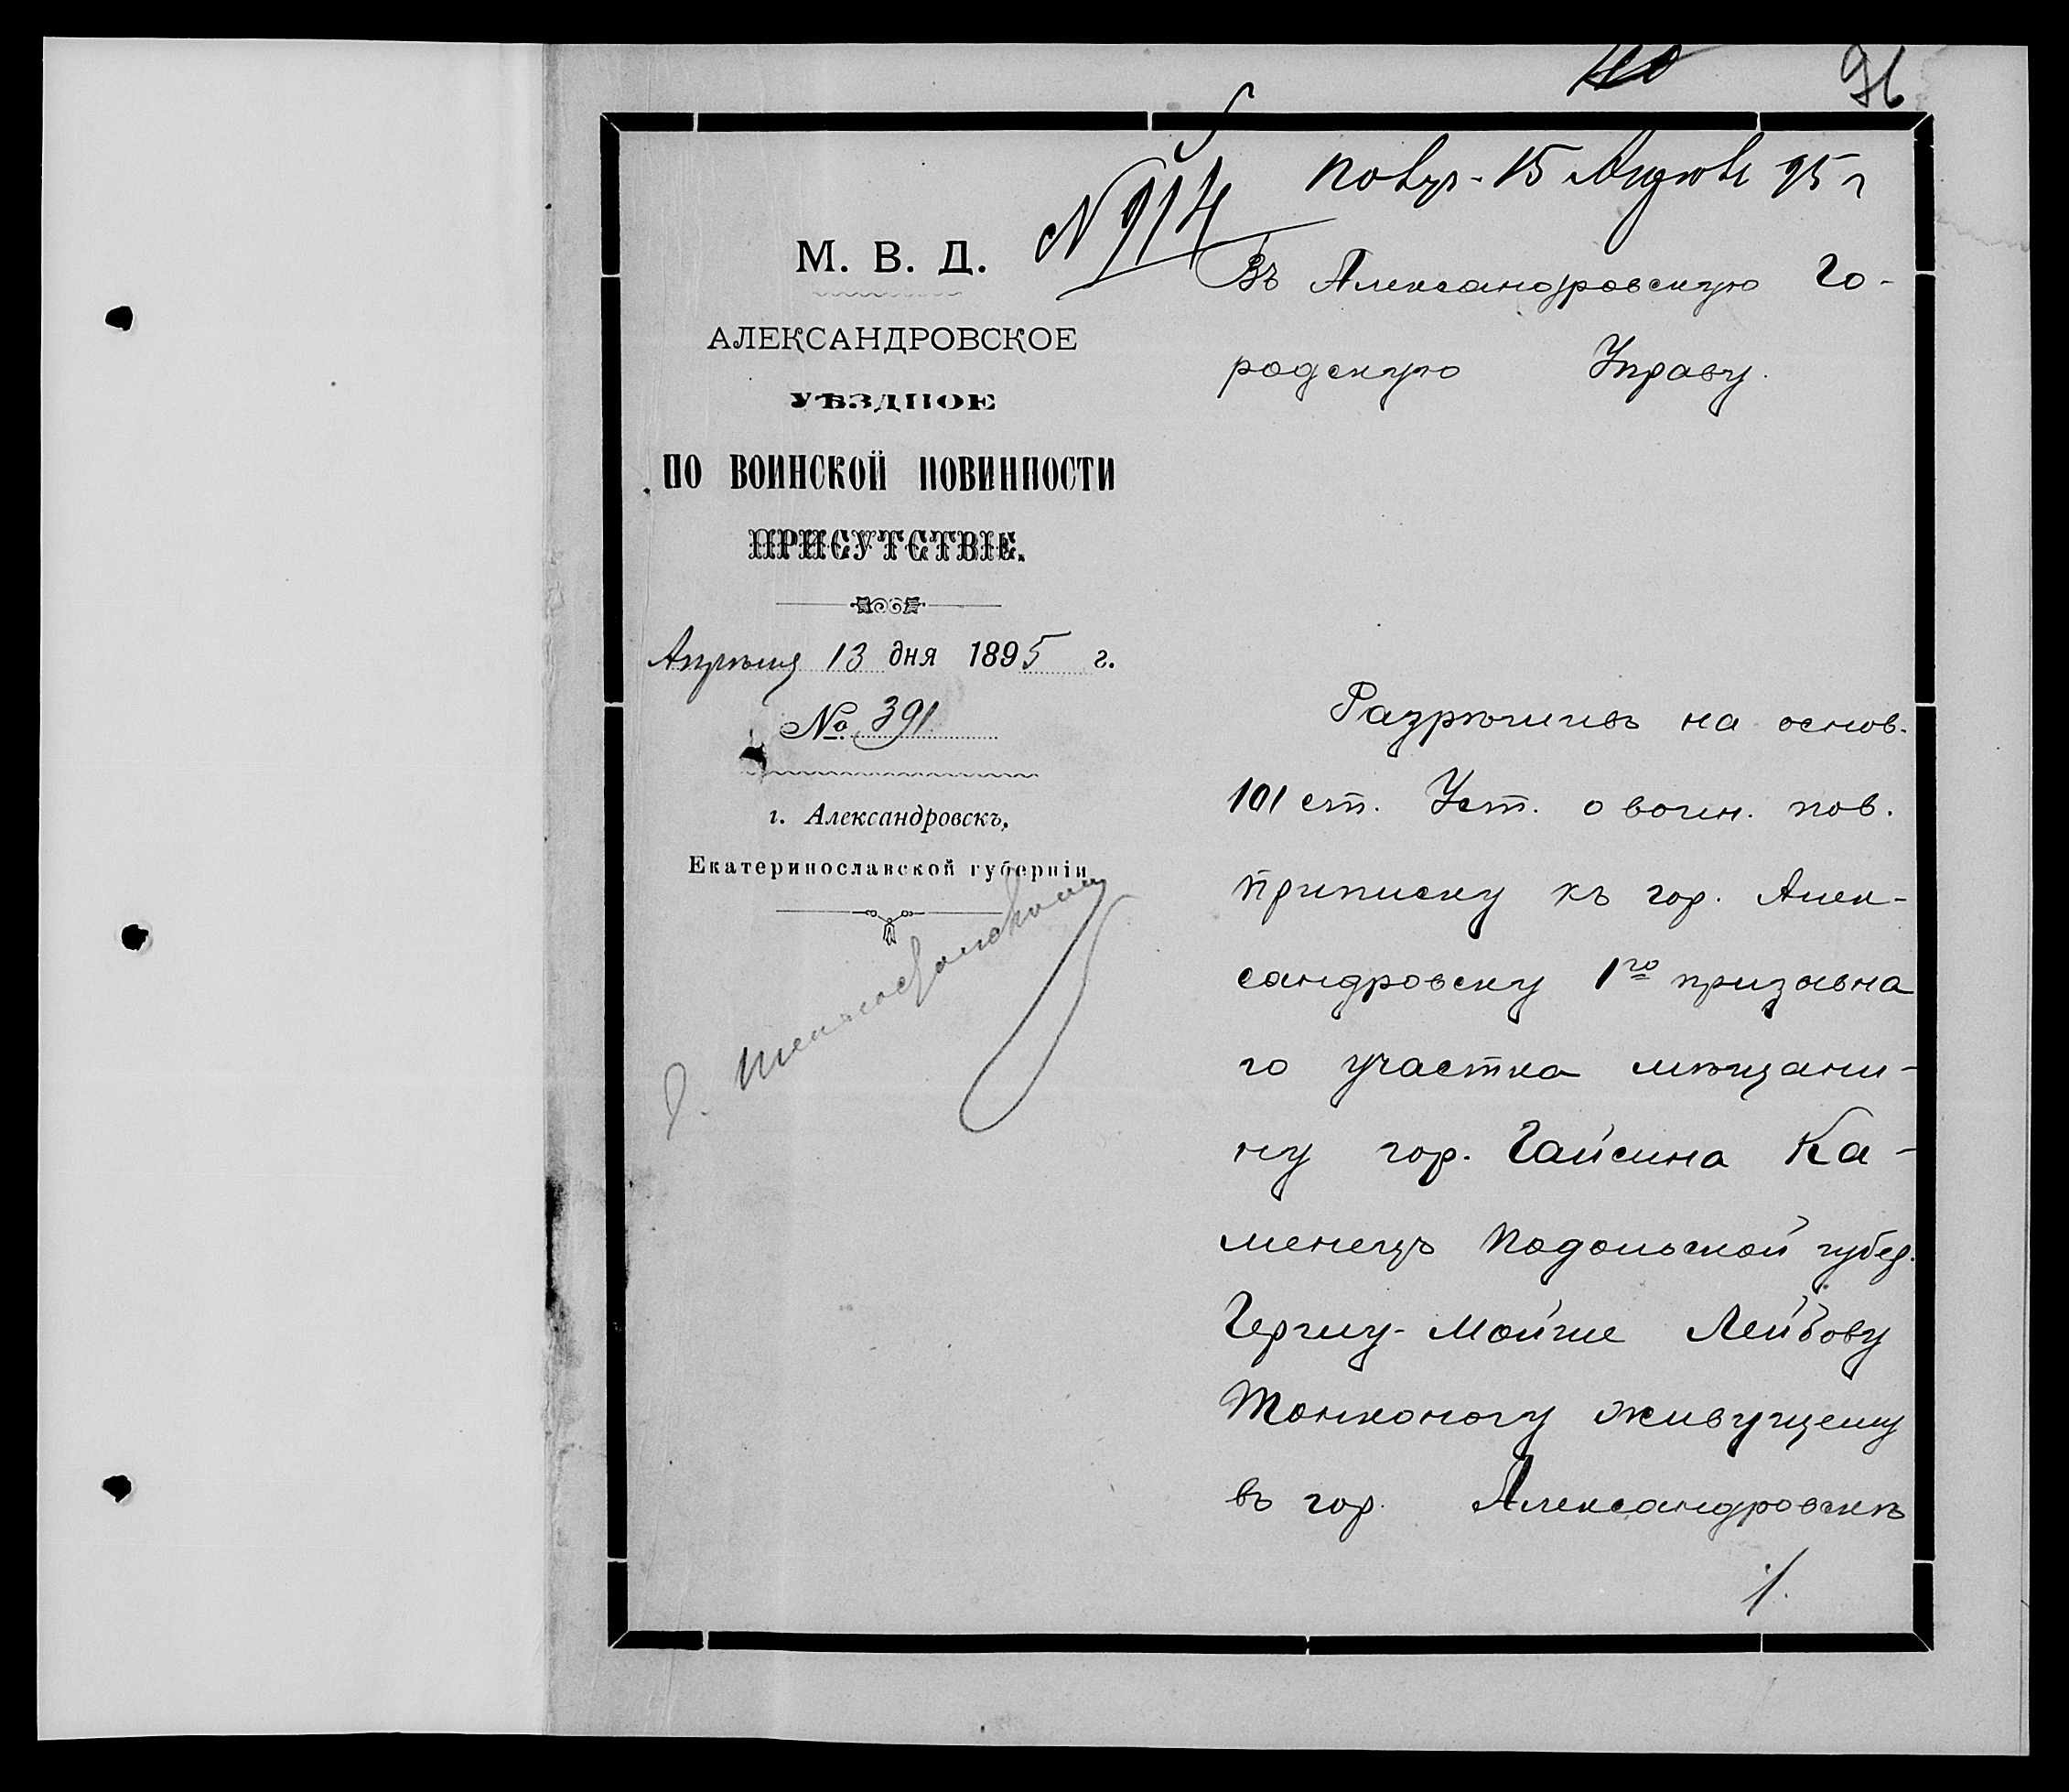 96
№ 914
М. В. Д.
АЛЕКСАНДРОВСКОЕ
УѢЗДНОЕ
ПО ВОИНСКОЙ ПОВИННОСТИ
ПРИСУТСТВІЕ.
Апрѣля 13 дня 1895 г.
№ 391
г. Александровскъ,
Екатеринославской губерніи
15 Апрѣля 95 г
Въ Александровскую Го-
родскую Управу.
Разрѣшивъ на основ.
101 ст. Уст. о воин. пов.
приписку къ гор. Алек-
сандровску 1го призывна
го участка мѣщани-
ну гор. Гайсина Ка-
менецъ Подольской губер.
Гершу-Мойше Лейбову
Тонконогу живущему
въ гор. Александровскѣ